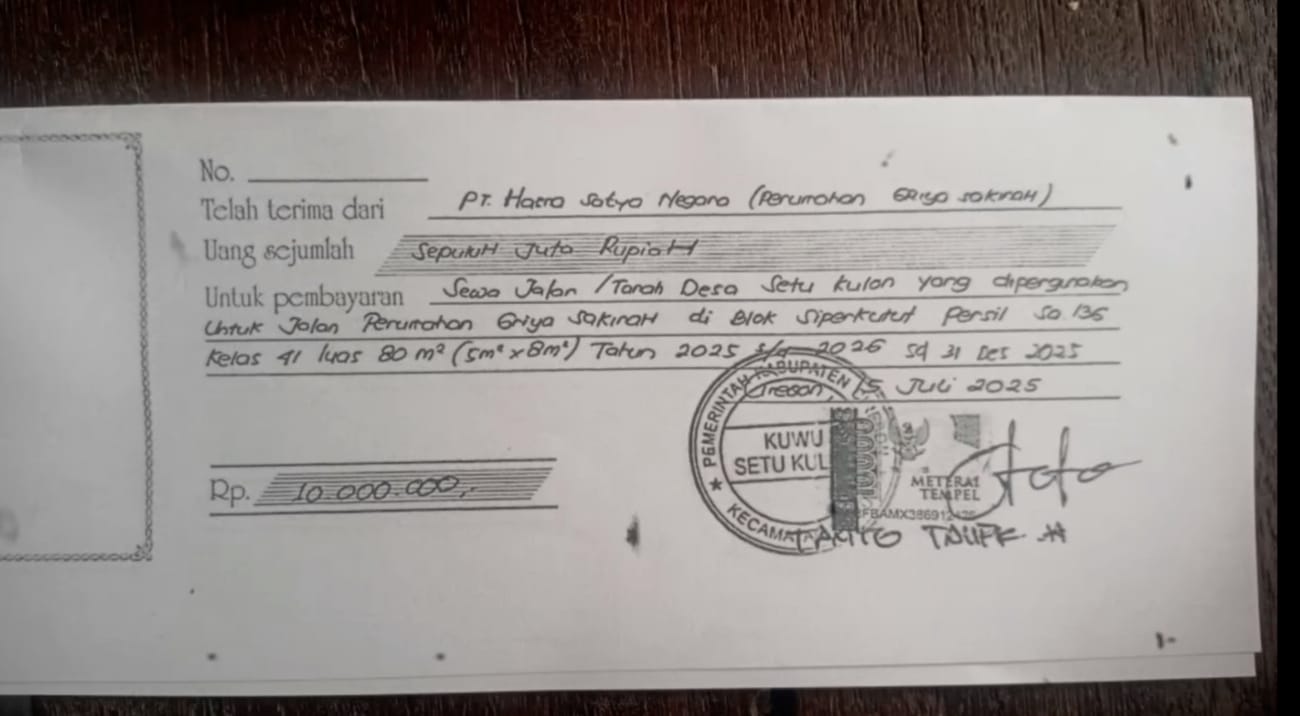 No.
Telah terima dari PT. Hasra Satya Negara (Perumahan Griya SakinaH)
Uang sejumlah SepuluH Juta RupiaH
Untuk pembayaran Sewa Jalan / Tanah Desa Setu Kulon yang dipergunakan
Untuk Jalan Perumahan Griya SakinaH di Blok Siperkutut Persil Sa 136
Kelas 41 luas 80 m² (5m² x 8m²) Tahun 2025 s/d 2026 sd 31 Des 2025
15 Juli 2025
PEMERINTAH KABUPATEN
KUWU
SETU KUL
KECAMATA
10000
METERAI
TEMPEL
Rp. 10.000.000,-
TAUFK .H